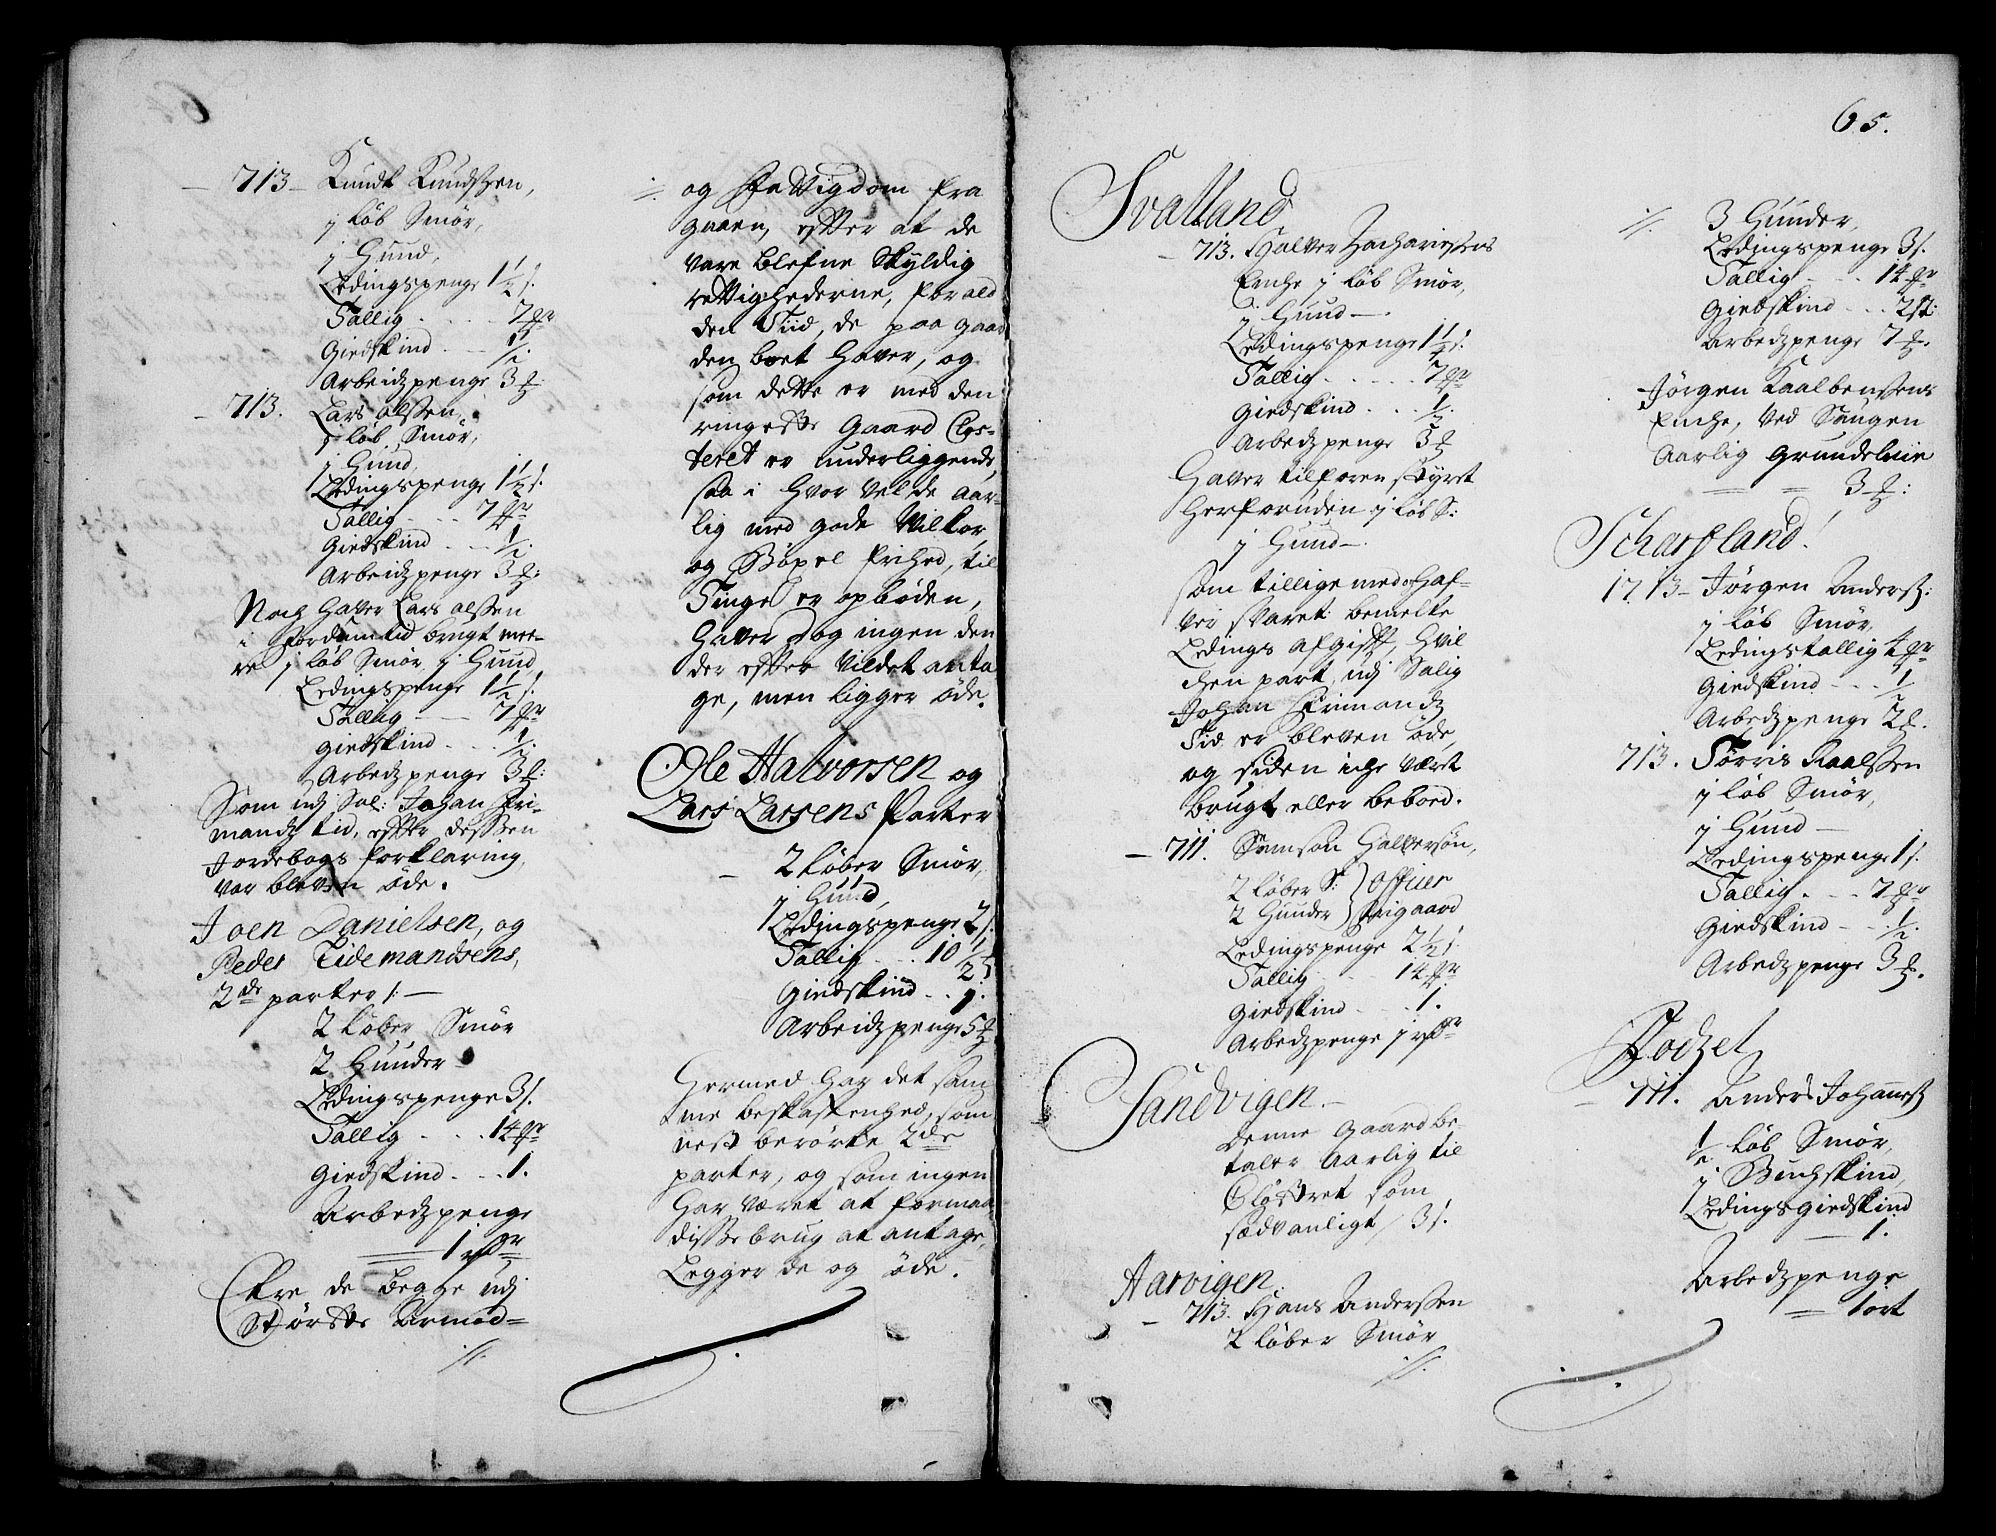 713 Knudt Knudssen,
j Løb Smør,
j Huud,
Ledingspenge 1 1/2 s.
Tallig . . . . 7 mr
Giedskind . . 1/2.
Arbeidzpenge 3 s
713. Lars olssen,
j Løb Smør,
j Huud,
Ledingspenge 1 1/2 s.
Tallig . . . 7 mr
Giedskind . . . 1/2.
Arbeidzpenge 3 s:
Noch haver Lars olssen
i fordumtid brugt mee-
re j Løb Smør j Huud
Ledingspenge 1 1/2 s.
Tallig — 7 mr
giedskind . . . 1/2.
Arbedzpenge 3 s:
Som udj Sal: Johan Fri-
mandz tid, efter dessen
Jordebogs forklaring,
var bleven øde.
Joen Danielsen, og
Peder Tidemandsens,
2de parter /: —
2 Løber Smør
2 Huuder
Ledingspenge 3 s.
Tallig . . . 14 mr
Giedskind . . . 1.
Arbedzpenge
1 rdr
Ere de begge udj
Største Armod=
://:
://: og fattigdom fra
gaaen, efter at de
vare blefne Skyldig
rettighederne, for ald
den Tiid, de paa gaar
den boet haver, og
som dette er med den
ringeste Gaard Clos-
teret er underliggende,
saa i hvor vel de aar-
lig med gode Vilkor,
og Bøxel frihed, til
Tinge er opbøden,
haver dog ingen den
der efter vildet anta
ge, men ligger øde.
Ole Halvorsen og
Lars Larsens Parter
2 Løber Smør,
j Huud,
Ledingspenge 2 s.
Tallig . . . 10 1/2
Giedskind . . 1.
Arbeidzpenge 5 s
Hermed har det sam
me beskaffenhed, som
nest berørte 2de
parter, og som ingen
har været at formaa
disse brug at antage,
Legger de og øde.
65.
Svalland
713. Halver Zachariessens
Enche j Løb Smør,
j Huud —.
Ledingspenge 1 1/2 s.
Tallig . . . . . 7 mr
Giedskind . . . 1/2
Arbedzpenge 3 s
Haver tilforen styret
herforuden j Løb S:
j Huud —.
som tillige med haf-
ver svaret bemelte
Ledings afgift, hvil
chen part, udj Salig
Johan Frimandz
Tid er bleven øde,
og siden iche vært
brugt eller beboed.
711. Samson Halversøn,
2 Løber S: } Officer
2 Huuder } rigaard
Ledingspenge 2 1/2 s.
Tallig . . . 14 mr
Giedskind . . . 1.
Arbedzpenge j rdr
Sandvigen. —
Denne gaard be-
taler Aarlig til
Clostret som
sædvanligt / 3 s.
Aarvigen.
713. Hans Anderssen
2 Løber Smør
://:
://: 3 Huuder,
Ledingspenge 3 s.
Tallig . . . 14 mr
Giedskind . . . 2 st:
Arbedzpenge 7 s.
Jørgen Kaalbenssens
Enche, ved Vaagen
Aarlig Grundeleie
3 s:
Scharfland.
1713 — Jørgen Anderss:
j Løb Smør,
Ledingstallig 4 mr
Giedskind . . . 1/2
Arbedzpenge 2 s.
713. Tørris Raalssen
j Løb Smør,
j Huud —
Ledingspenge 1 s.
Tallig . . . 7 mr
Giedskind — . 1/2.
Arbedzpenge 3 s.
711. Anders Johaness
1/2 Løb Smør,
j Buchskind,
Ledingsgiedskind
1.
Arbedzpenge
= 1 ort